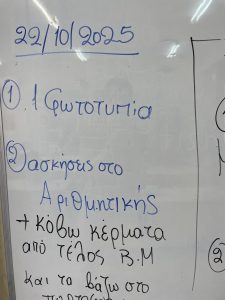 22/10/2025
① 1 φωτοτυπία
② ασκήσεις στο
Αριθμητικής
→ κόβω κέρματα
από τέλος Β.Μ
και τα βάζω στο